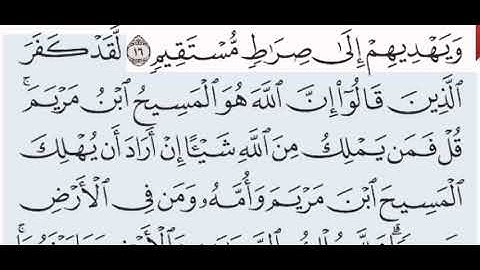 وَيَهۡدِيهِمۡ إِلَىٰ صِرَٰطٖ مُّسۡتَقِيمٖ ١٦ لَّقَدۡ كَفَرَ
ٱلَّذِينَ قَالُوٓاْ إِنَّ ٱللَّهَ هُوَ ٱلۡمَسِيحُ ٱبۡنُ مَرۡيَمَۚ
قُلۡ فَمَن يَمۡلِكُ مِنَ ٱللَّهِ شَيۡـًٔا إِنۡ أَرَادَ أَن يُهۡلِكَ
ٱلۡمَسِيحَ ٱبۡنَ مَرۡيَمَ وَأُمَّهُۥ وَمَن فِي ٱلۡأَرۡضِ